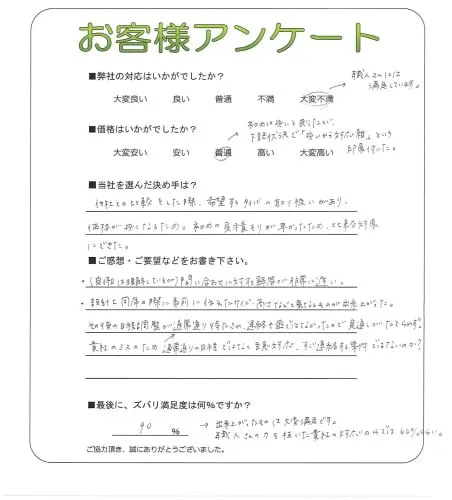 お客様アンケート
■弊社の対応はいかがでしたか？
大変良い 良い 普通 不満 大変不満
→ 職人さんには満足しています。
■価格はいかがでしたか？
初めは安いと感じたが、
下記状況で「安いから対応が雑」という
印象が付いた。
大変安い 安い 普通 高い 大変高い
■当社を選んだ決め手は？
他社との比較をした際、希望するタイプの取り扱いがあり、
価格が安くなるため。初めの見積もりが早かったため、比較対象
にできた。
■ご感想・ご要望などをお書き下さい。
・(良く 問い合わせに対する 非常に遅い。
・設計士同席の際に事前に伝えたサイズ・高さなどと異なるものが出来上がった。
その後の日程調整が通常通り待たされ、連絡も 見通しが たてられず。
貴社のミスのため、通常通りの日程ではなく 早急対応、すぐ連絡する案件ではないのか？
■最後に、ズバリ満足度は何％ですか？
90 ％
→ 出来上がったものは大変満足です。
職人さんの力を抜いた貴社の対応のみでは60％くらい。
ご協力頂き、誠にありがとうございました。